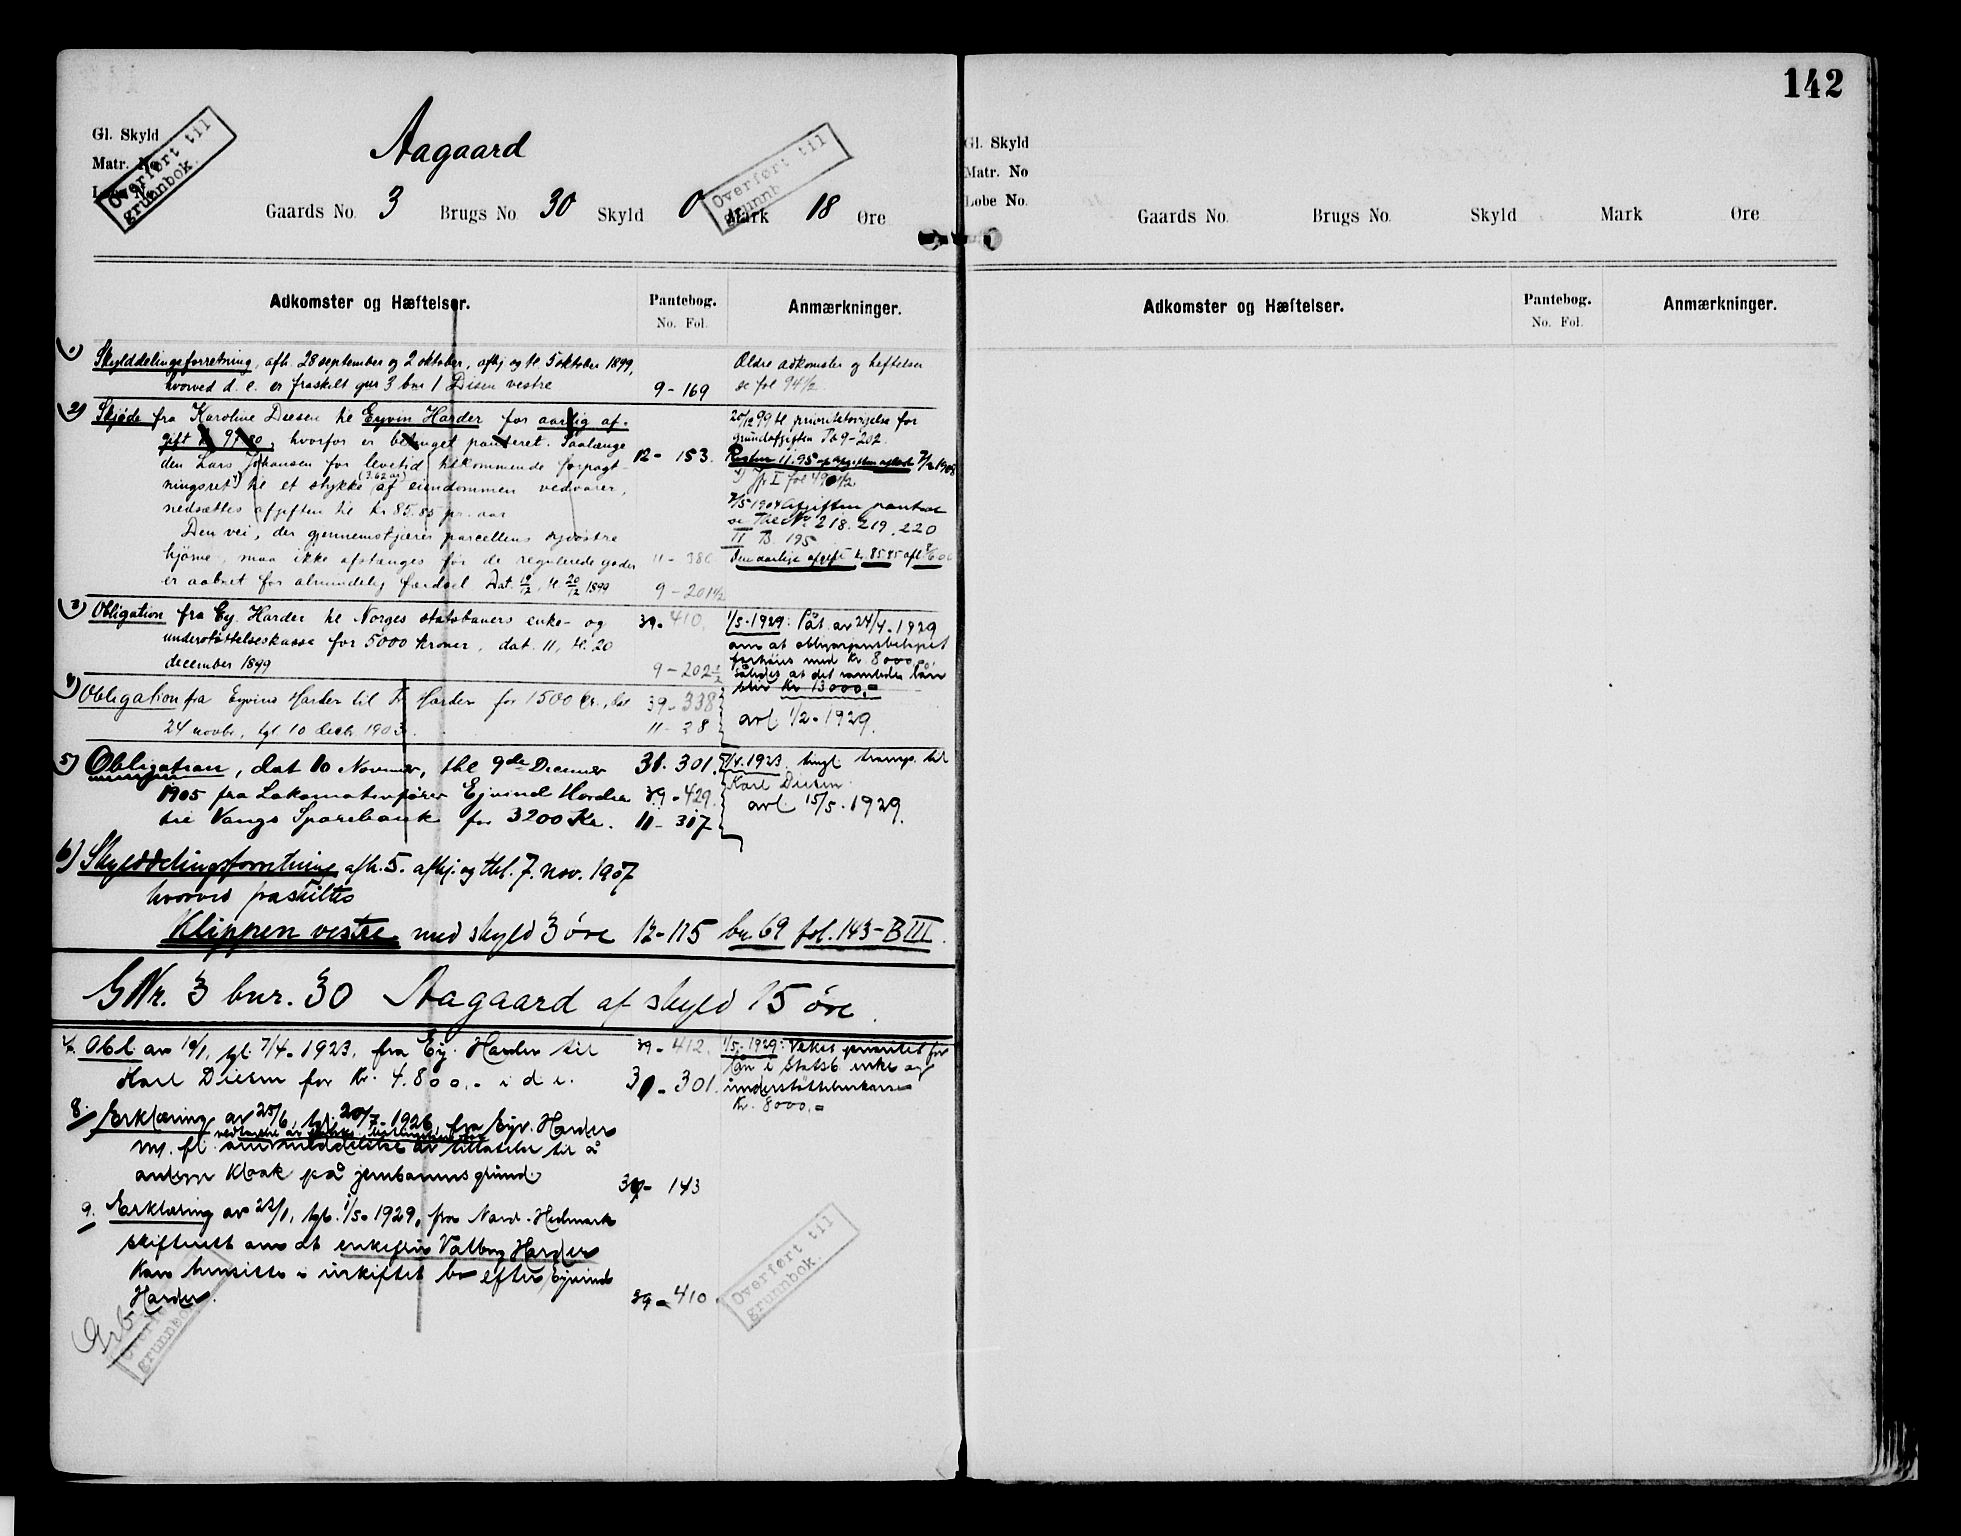 142
Gl. Skyld
Matr. No
Løbe No.
Overført til
grunnbok.
Aagaard
Overført til
grunnb
Gaards No. 3 Brugs No. 30 Skyld 0 Mark 18 Øre
Adkomster og Hæftelser.
Pantebog.
No. Fol.
Anmærkninger.
1) Skylddelingsforretning, afh. 28 september og 2 oktober, afhj og tl. 5 oktober 1899,
hvorved d. e. er fraskilt gnr 3 bnr 1 Disen vestre
9 - 169
Ældre adkomster og heftelser
se fol 94½
2) Skjøde fra Karoline Diesen til Eyvin Harder for aarlig af-
gift kr 97.80, hvorfor er betinget panteret. Saalænge
den Lars Johansen for levetid tilkommende forpagt-
ningsret til et stykke (3.62 ar) af eiendommen vedvarer,
nedsættes afgiften til kr 85.85 pr. aar
Den vei, der gjennemskjærer parcellens sydøstre
hjørne, maa ikke afstænges før de regulerede gader
er aabnet for almindelig færdsel Dat. 19/12, tl. 20/12 1899
12 - 153.
11 - 386
9 - 201½
20/12 99 tl prioritetsvigelse for
grundafgiften Pb 9-202.
Resten 11.95 af afgiften aflæst 7/12 1908
1) Jfr I fol 190½
2/5 1904 Afgiften pantsat
se 218. 219. 220
II B. 195
Den aarlige afgift kr. 85.85 afl
3) Obligation fra Ey. Harder til Norges statsbaners enke- og
understøttelseskasse for 5000 kroner, dat. 11, tl. 20
december 1899
39 - 410.
9 - 202½
1/5-1929: Påt. av 24/4-1929
om at obligasjonsbeløpet
forhøies med kr 8000,-
således at det samlede lån
blir kr 13000,-
4) Obligation fra Eyvind Harder til Fr Harder for 1500 kr., dat
24 novbr, tgl 10 decbr 1903.
39 - 338
11 - 28
avl. 1/2-1929.
5) Obligation, dat 10 November, thl 9de December
1905 fra Lokomotivfører Ejvind Harder
til Vangs Sparebank for 3200 Kr.
31 - 301.
39 - 429.
11 - 317
7/4.1923. tingl. transp. til
Karl Diesen.
avl. 15/5-1929.
6) Skylddelingsforretning afh. 5. afhj. og thl. 7. nov. 1907
hvorved fraskiltes
Klippen vestre med skyld 3 øre 12-115 bn. 69 fol. 143-B III.
GNr. 3 bnr. 30 Aagaard af skyld 15 øre.
7. Obl. av 19/1, tgl. 7/4-1923, fra Ey. Harder til
Karl Diesen for Kr. 4.800,- i d. e.
39 - 412.
31 - 301.
1/5-1929: Veket prioritet for
lån i Statsb. enke og
understøttelseskasse
Kr. 8000,-
8. Erklæring av 25/6, tgl. 20/7-1926, fra Eyv. Harder
m. fl. tillatelse til å
anlegge kloak på jernbanens grund
39 - 143
9. Erklæring av 22/1, tgl. 1/5-1929, fra Nord-Hedmark
skifterett om at enkefru Valborg Harder
kan hensitte i uskiftet bo efter Ejvind
Harder.
39 - 410
Overført til
grunnbok.
Overført til
grunnbok.
Gl. Skyld
Matr. No
Løbe No.
Gaards No. Brugs No. Skyld Mark Øre
Adkomster og Hæftelser.
Pantebog.
No. Fol.
Anmærkninger.